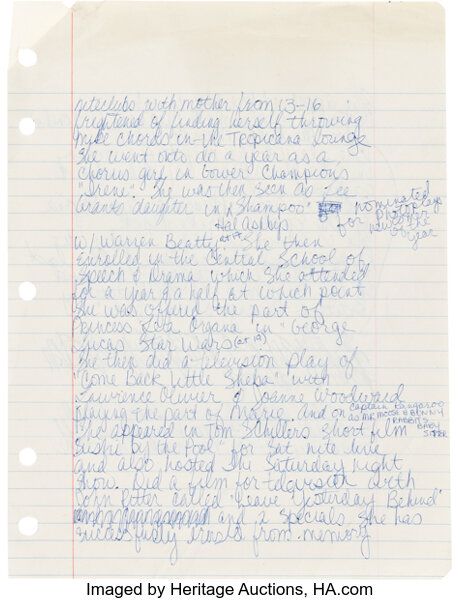 niteclubs with mother from 13-16
frightened of finding herself throwing
mike chords in the Tropicana lounge
She went onto do a year as a
chorus girl in Gower Champions
"Irene". She was then seen as Lee
Grants daughter in "Shampoo"
Hal ashby
nominated
for photoplay
newcomer
of the
year
w/ Warren Beatty at 17 She then
Enrolled in the Central School of
Speech & Drama which she attended
for a year & a half at which point
She was offered the part of
Princess Leia Organa in "George
Lucas Star Wars (at 19)
She then did a television play of
"Come Back Little Sheba" with
Lawrence Olivier & Joanne Woodward
playing the part of Marie. And on
captain Kangaroo
as Mr. Moose & Bunny
Rabbits
Baby
Sitter
She appeared in Tom Schillers short film
Sushi by the Pool" for Sat nite live
and also hosted the Saturday night
Show. Did a film for television with
John Ritter called "Leave Yesterday Behind"
and 2 specials she has
successfully erased from memory
Imaged by Heritage Auctions, HA.com